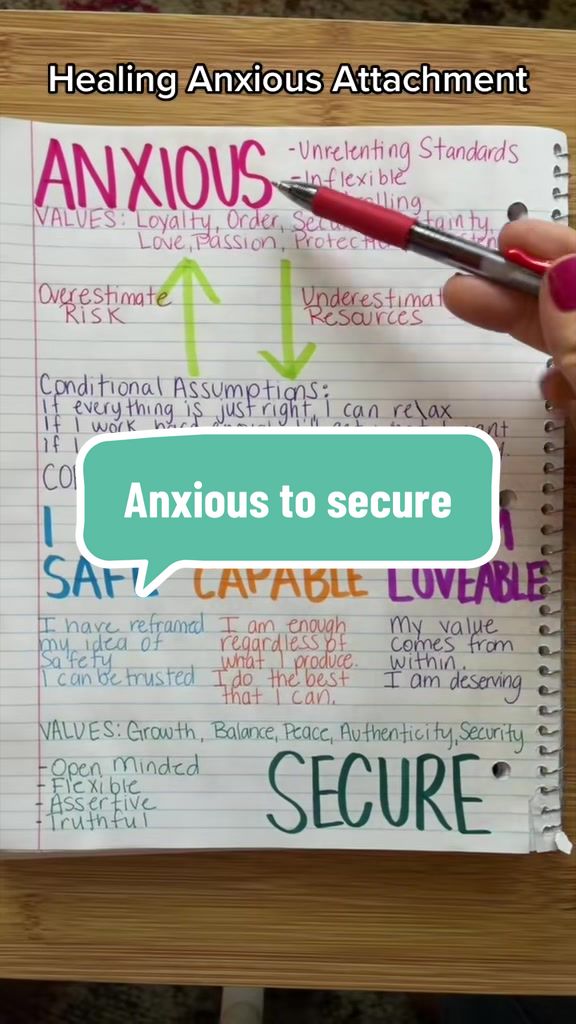 Healing Anxious Attachment
ANXIOUS
-Unrelenting Standards
-Inflexible
VALUES: Loyalty, Order,
Love, Passion,
Overestimate
Risk
Underestimat
Resources
Conditional Assumptions:
If everything is just right, I can relax
If I work hard
If I
Anxious to secure
I
SAFE
CAPABLE
LOVEABLE
I have reframed
my idea of
Safety
I can be trusted
I am enough
regardless of
what I produce.
I do the best
that I can.
My value
comes from
within.
I am deserving
VALUES: Growth, Balance, Peace, Authenticity, Security
-Open Minded
-Flexible
-Assertive
-Truthful
SECURE